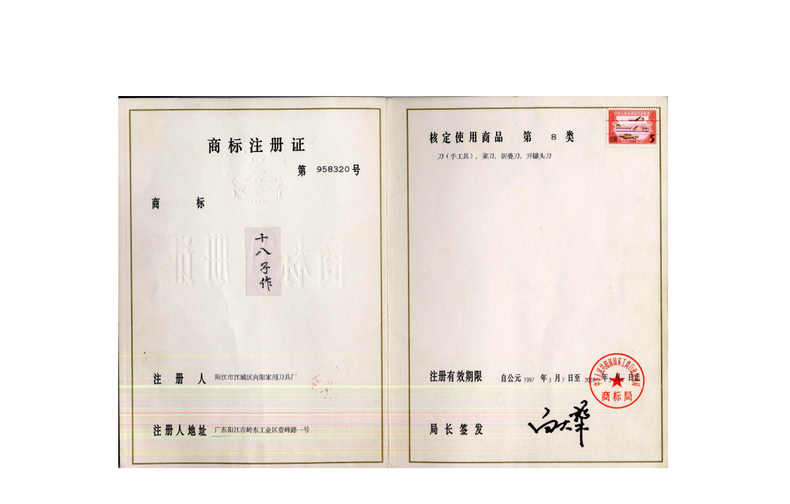 商标注册证
第 958320 号
商 标
十八子作
注 册 人 阳江市江城区向阳家用刀具厂
注册人地址 广东阳江市岭东工业区登峰路一号
核定使用商品 第 8 类
刀（手工具），菜刀，折叠刀，开罐头刀
注册有效期限 自公元 1997 年 3 月 7 日至 年 月 日止
商标局
局长签发